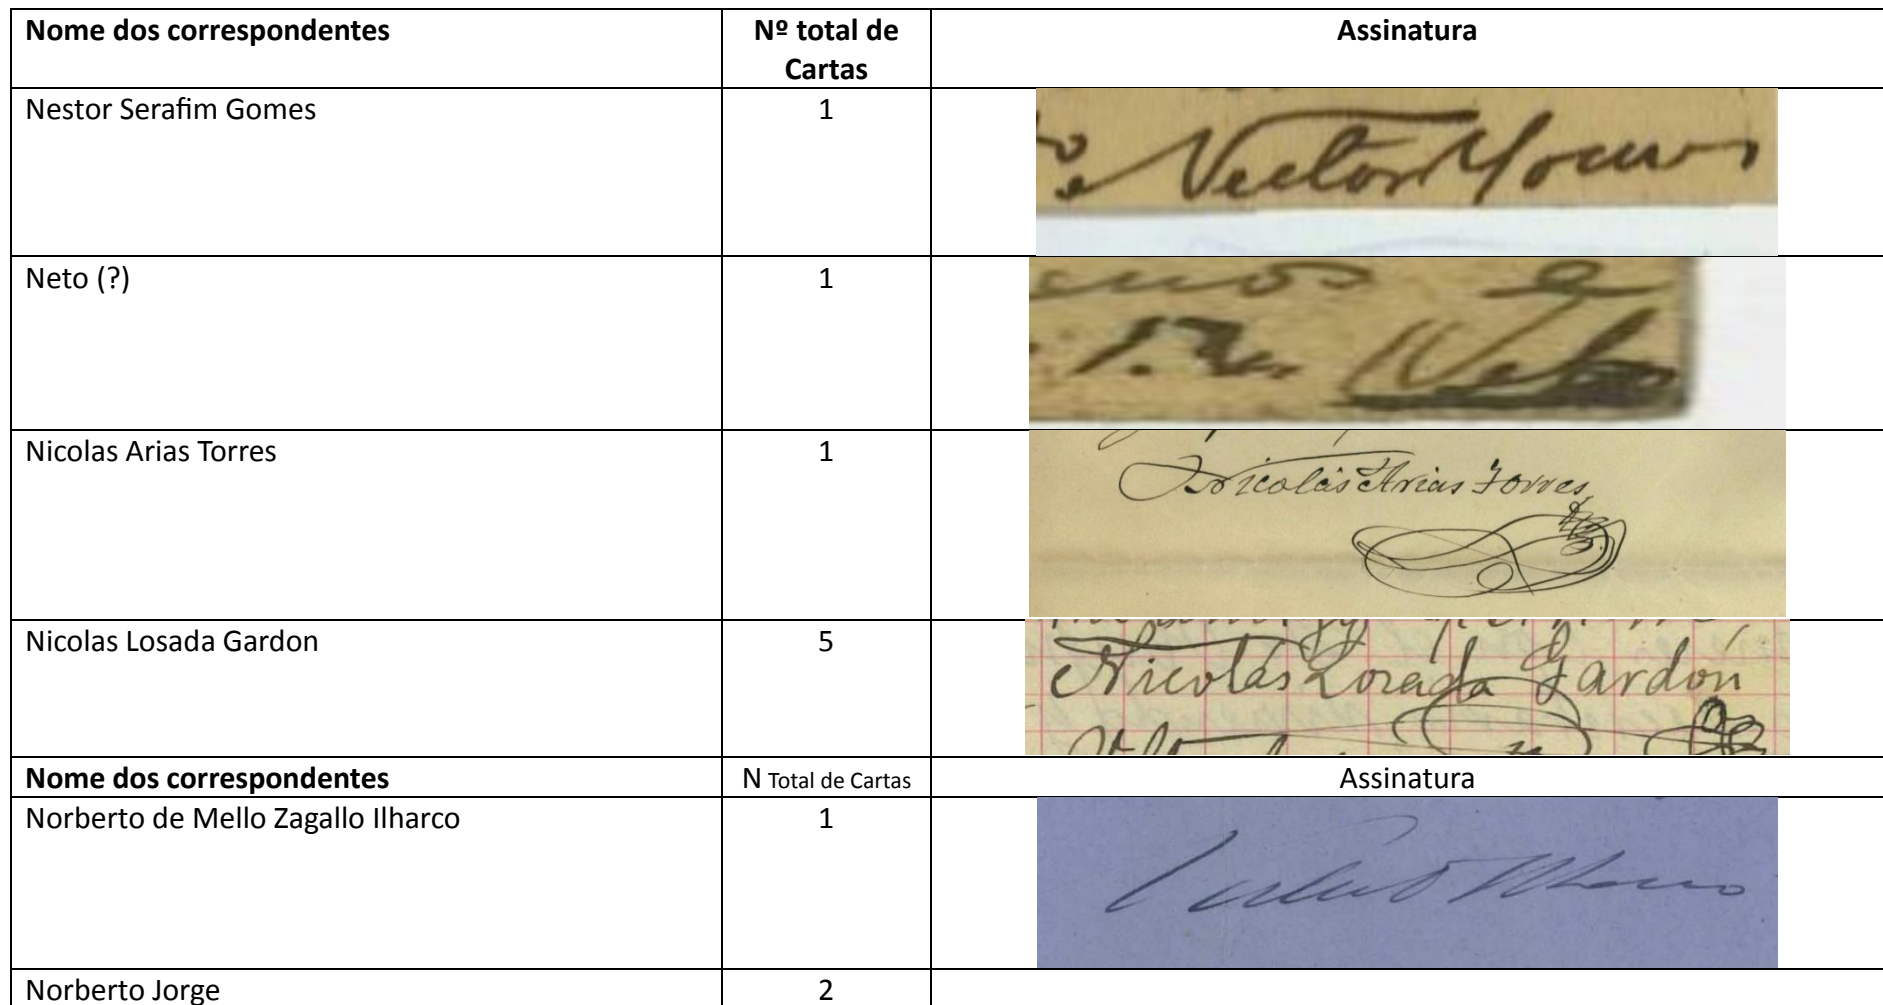 Nome dos correspondentes Nº total de Cartas Assinatura
Nestor Serafim Gomes 1
Nestor Gomes
Neto (?) 1
Neto
Nicolas Arias Torres 1
Nicolás Arias Torres
Nicolas Losada Gardon 5
Nicolás Losada Gardón
Nome dos correspondentes N Total de Cartas Assinatura
Norberto de Mello Zagallo Ilharco 1
Norberto Jorge 2